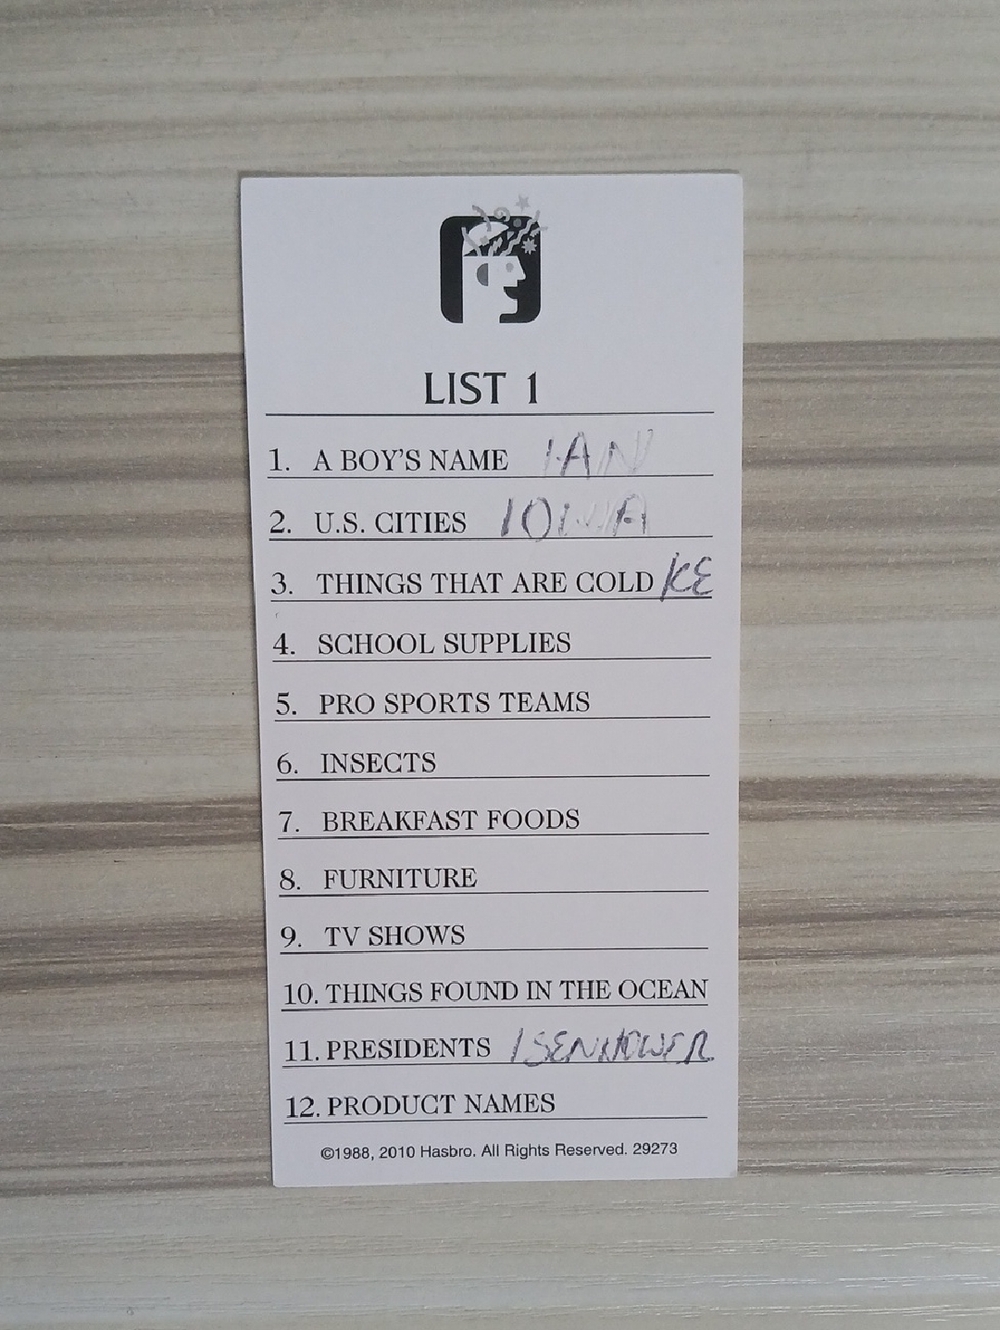 LIST 1
1. A BOY'S NAME IAN
2. U.S. CITIES IOWA
3. THINGS THAT ARE COLD ICE
4. SCHOOL SUPPLIES
5. PRO SPORTS TEAMS
6. INSECTS
7. BREAKFAST FOODS
8. FURNITURE
9. TV SHOWS
10. THINGS FOUND IN THE OCEAN
11. PRESIDENTS ISENHOWER
12. PRODUCT NAMES
©1988, 2010 Hasbro. All Rights Reserved. 29273